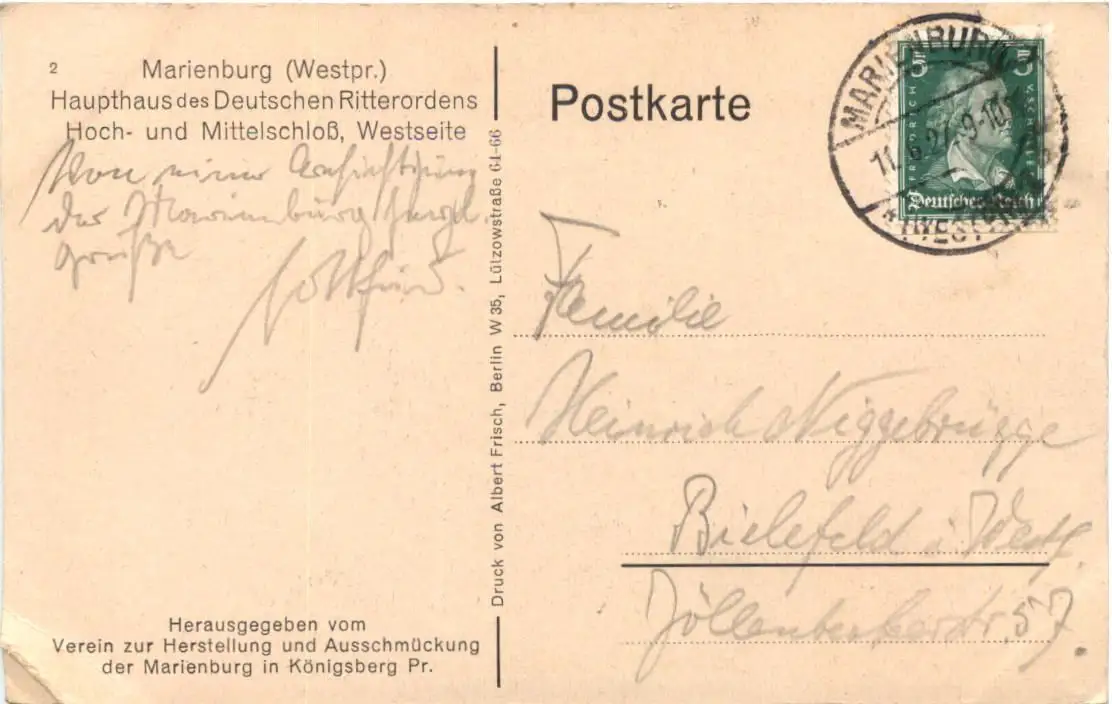 2
Marienburg (Westpr.)
Haupthaus des Deutschen Ritterordens
Hoch- und Mittelschloß, Westseite
Von einer Besichtigung
der Marienburg
Grüße
Druck von Albert Frisch, Berlin W 35, Lützowstraße 64-66
Herausgegeben vom
Verein zur Herstellung und Ausschmückung
der Marienburg in Königsberg Pr.
Postkarte
MARIENBURG
11.6.27. 9-10
(WESTPR.)
5 5
FRIEDRICH V. SCHILLER
Deutsches Reich
Familie
Heinrich Niggebrügge
Bielefeld i. Westf.
Jöllenbeckerstr. 57.